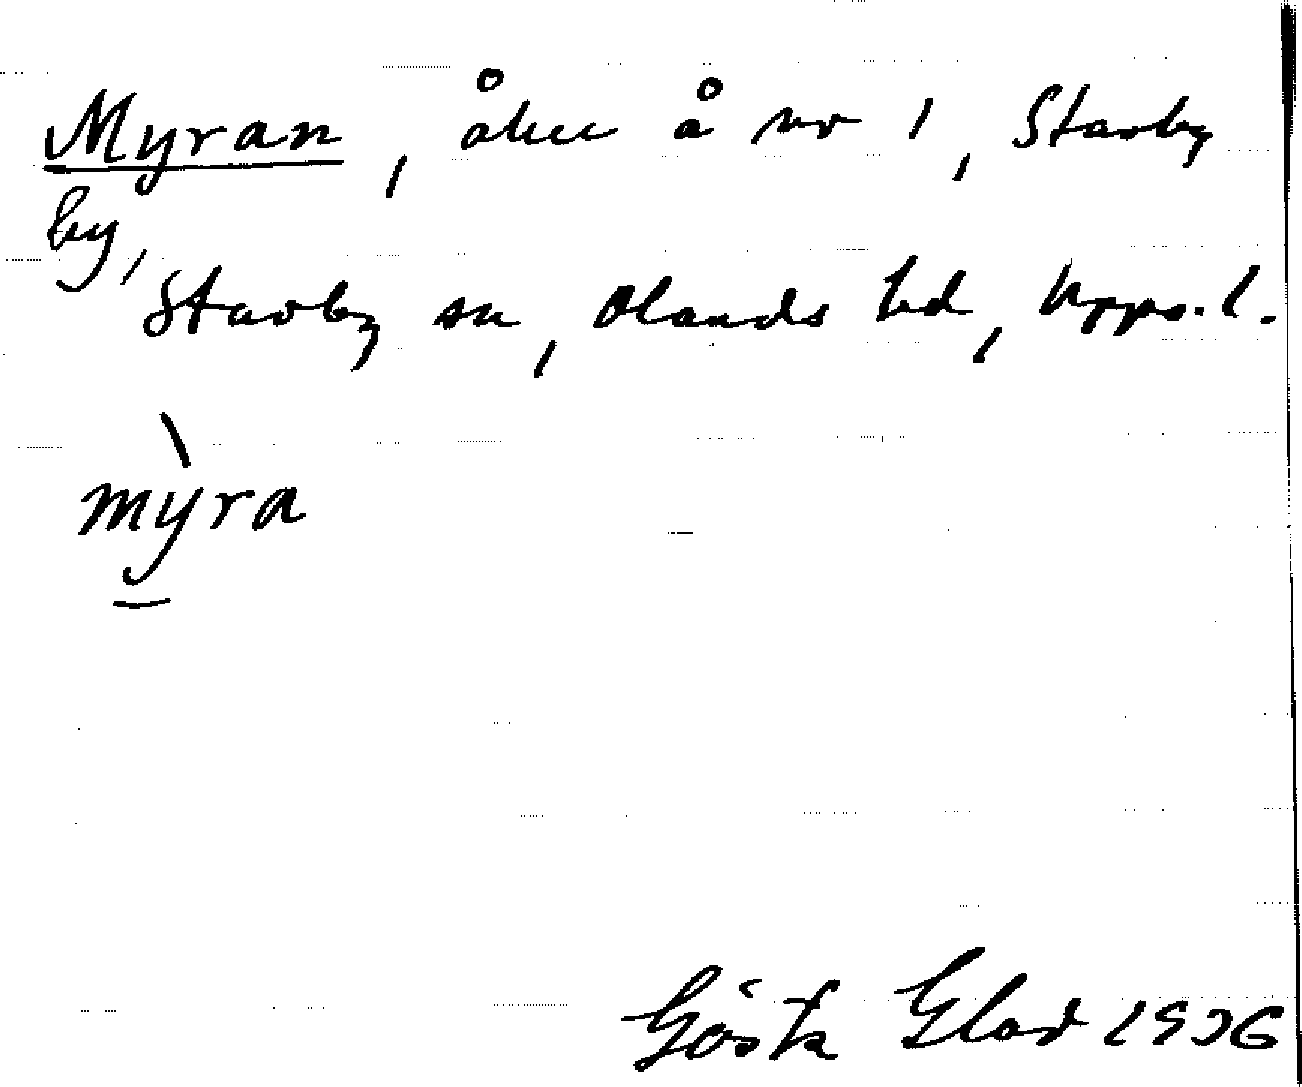 Myran, åker å nr 1, Stavby
by,
Stavby sn, Olands hd, Upps. l.
mỳra
Gösta Glad 1936